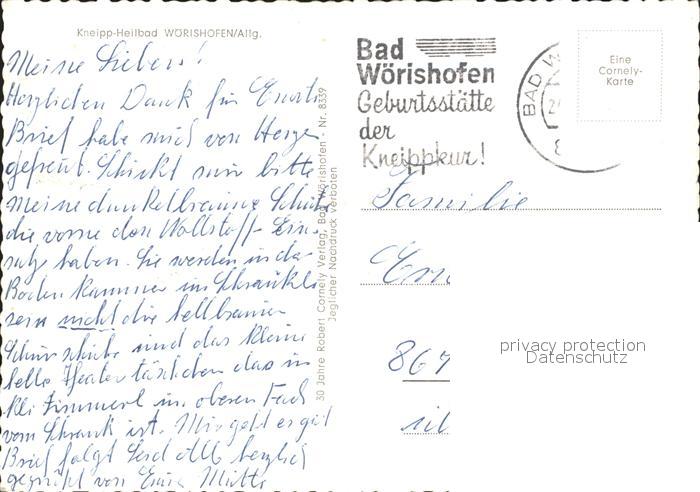 Kneipp-Heilbad WÖRISHOFEN/Allg.
Meine Lieben!
Herzlichen Dank für Euren
Brief habe mich von Herzen
gefreut. Schickt mir bitte
meine dunkelbraune Schuhe
die vorne den Wollstoff Ein-
satz haben. Sie werden in der
Boden kammer im Schränkl
sein nicht die hellbraunen
und das kleine
helle Theater täschchen das im
kl. Zimmerl im oberen Fach
vom Schrank ist. Mir geht es gut
Brief folgt Seid alle herzlich
gegrüßt von Eurer Mutti
30 Jahre Robert Cornely Verlag, Bad Wörishofen - Nr. 8339
Jeglicher Nachdruck verboten
Bad
Wörishofen
Geburtsstätte
der
Kneippkur!
BAD W
2
8
Eine
Cornely-
Karte
Familie
Ern
867
privacy protection
Datenschutz